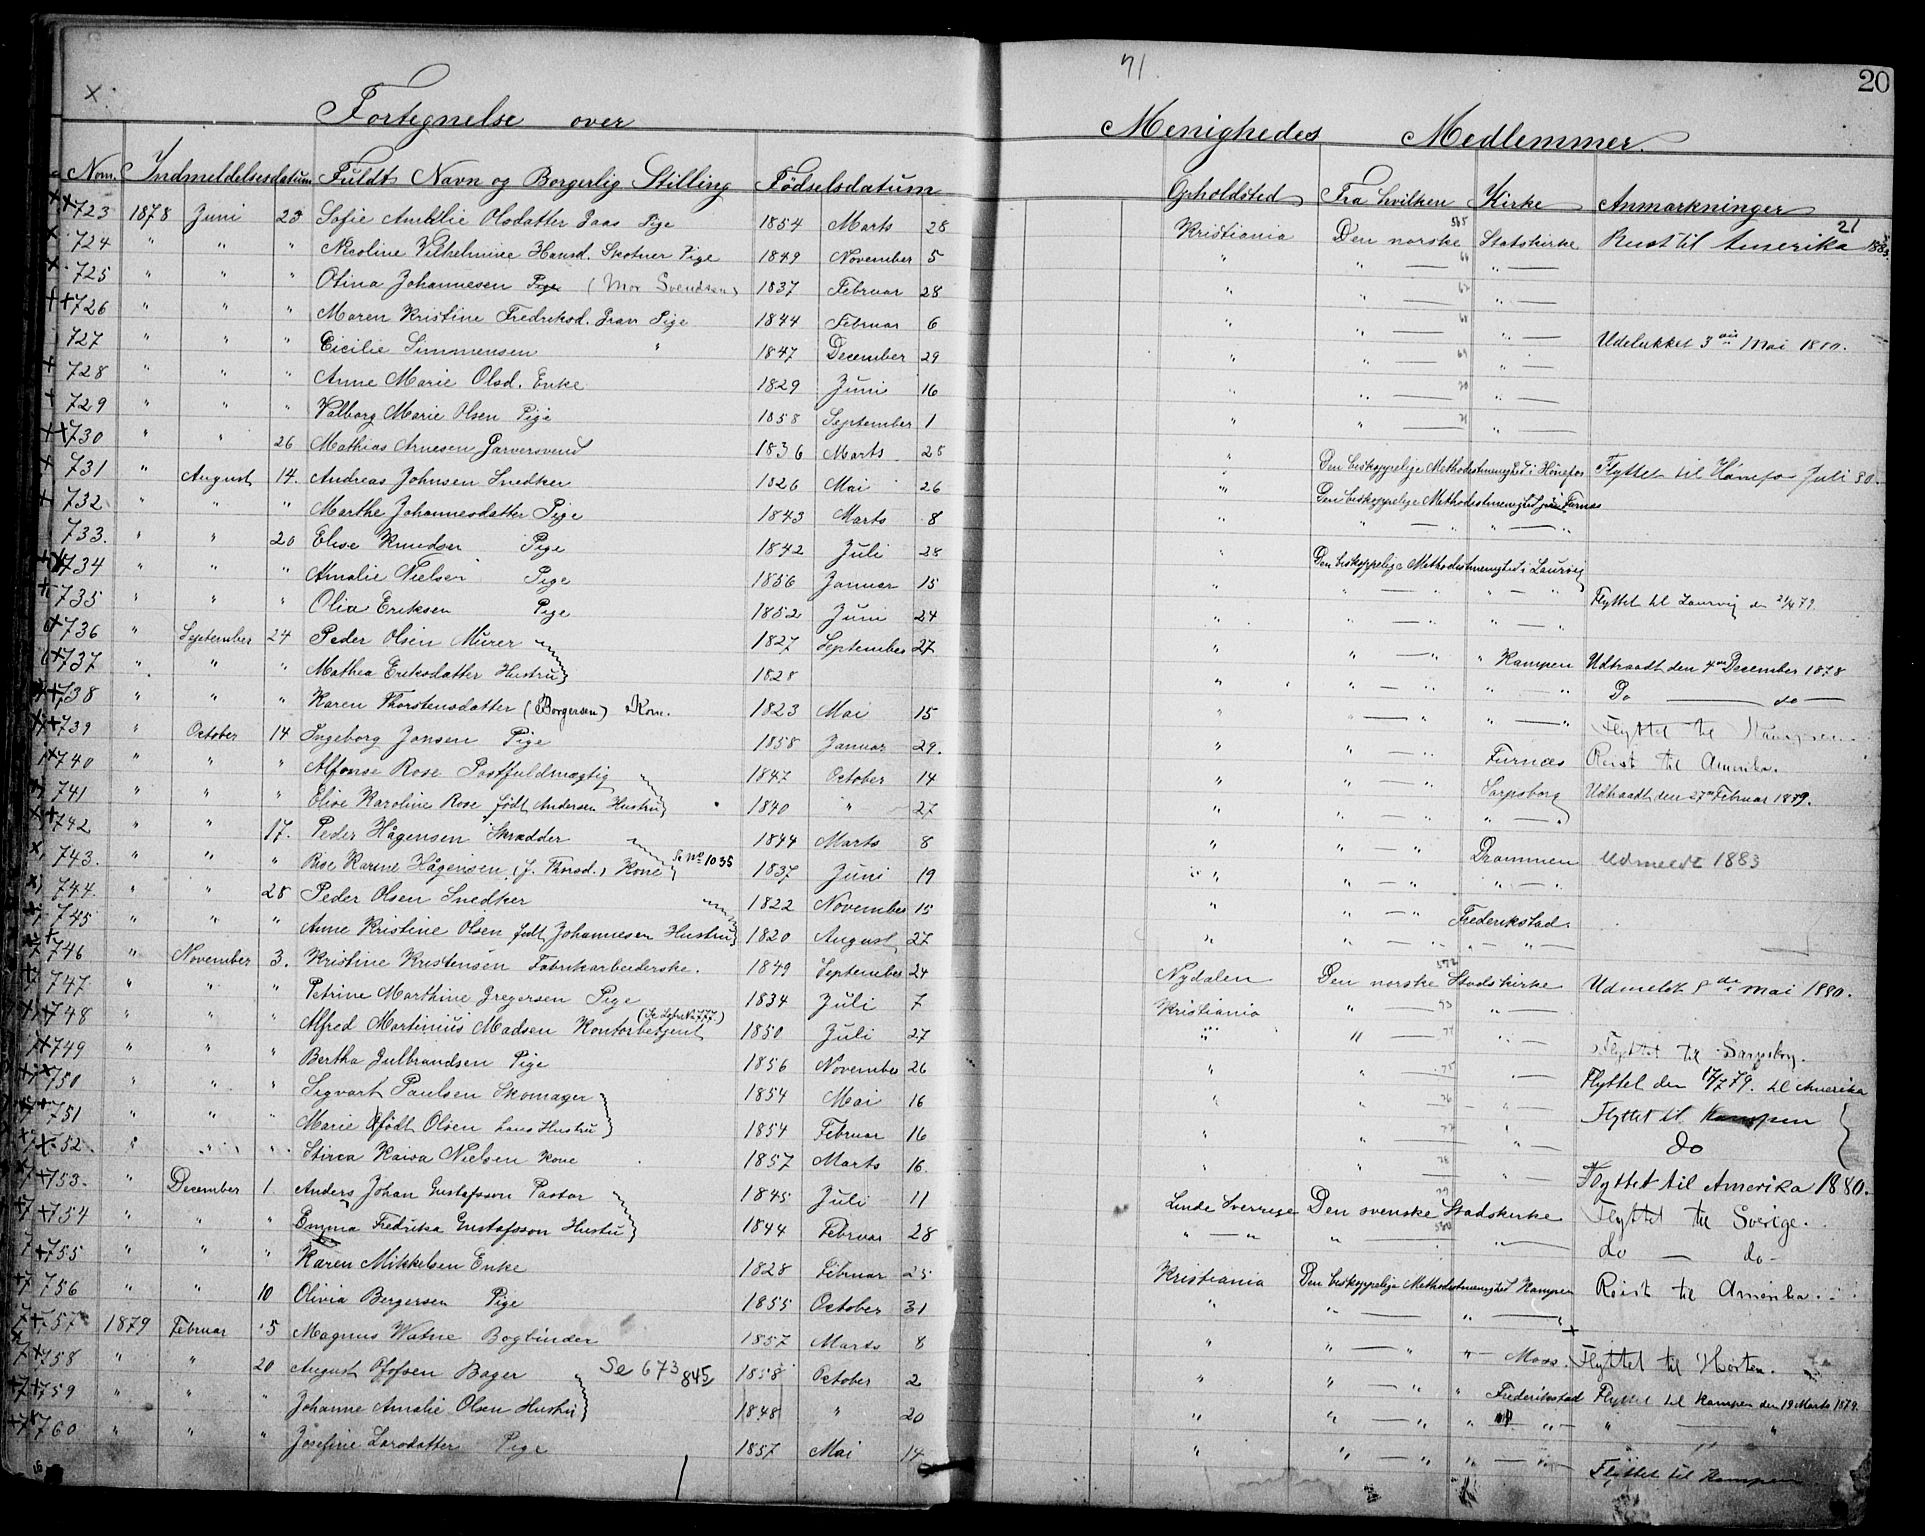 71.
20
21
Fortegnelse over Menighedes Medlemmer.
Nom. Indmeldelsesdatum Fuldt Navn og Borgerlig Stilling Fødselsdatum Opholdsted Fra hvilken Kirke Anmærkninger
723 1878 Juni 25 Sofie Amalie Olsdatter Pige 1854 Marts 28 Kristiania Den norske Statskirke Reist til Amerika
724 " " " Nicoline Vilhelmine Hansd. Skotner Pige 1849 November 5 " " — " —
725 " " " Olina Johannesen Pige (Mor Svendsen) 1837 Februar 28 " " — " —
726 " " " Maren Kristine Fredriksd. Pige 1844 Februar 6 " " — " —
727 " " " Cicilie Simmensen " 1847 December 29 " " — " — Udelukket 3 die Mai 1880.
728 " " " Anne Marie Olsd. Enke 1829 Juni 16 " " — " —
729 " " " Valborg Marie Olsen Pige 1858 September 1 " " — " —
730 " " 26 Mathias Arnesen Garversvend 1836 Marts 25 "
731 " August 14. Andreas Johnsen Snedker 1826 Mai 26 " Den biskoppelige Methodistmenighed i Hønefos Flyttet til Hønefos Juli 80.
732 " " " Marthe Johannesdatter Pige 1843 Marts 8 " Den biskoppelige Methodistmenighed Furnæs
733. " " 20 Elise Knudsen Pige 1842 Juli 28 " " — " " — "
734 " " " Amalie Nielsen Pige 1856 Januar 15 " Den biskoppelige Methodistmenighed i Laurvig
735 " " " Olia Eriksen Pige 1852 Juni 24 " " — " " — " Flyttet til Laurvig den 21/4 79.
736 " September 24 Peder Olsen Murer 1827 September 27 " " — " " Kampen Udtraadt den 4de December 1878
737 " " " Mathea Eriksdatter Hustru 1828 " " — " " — " Do — do —
738 " " " Karen Thorstensdatter (Borgersen) Kone. 1823 Mai 15 " " — " " — " Flyttet til Kampen
739 " October 14 Ingeborg Jonsen Pige 1858 Januar 29. " " — " Furnæs Reist til Amerika.
740 " " " Alfonse Rose Postfuldmægtig 1847 October 14 " " — " Sarpsborg Udtraadt den 27de Februar 1889.
741 " " " Elise Karoline Rose født Andersen Hustru 1840 " 27 " " — " " — "
742 " " 17. Peder Hågensen Skrædder 1844 Marts 8 " " — " Drammen Udmeldt 1883
743. " " " Karine Hågensen (f. Thorsd.) Kone Se No 1035 1837 Juni 19 " " — " " — "
744. " " 28 Peder Olsen Snedker 1822 November 15 " " — " Frederikstad
745 " " " Anne Kristine Olsen født Johannesen Hustru 1820 August 27 " " — " " — "
746 " November 3. Kristine Kristensen Fabrikarbeiderske. 1849 September 24 Nydalen Den norske Stadskirke Udmeldt de Mai 1880.
747 " " " Petrine Marthine Gregersen Pige 1834 Juli 7 Kristiania " — " —
748 " " " Alfred Martinius Madsen Kontorbetjent (Se Løbe No 777) 1850 Juli 27 " " — " — Flyttet til Sarpsborg.
749 " " " Bertha Gulbrandsen Pige 1856 November 26 " " — " — Flyttet den 17/7 79. til Amerika
750 " " " Sigvart Paulsen Skomager 1854 Mai 16 " " — " — Flyttet til Kampen
751 " " " Marie født Olsen hans Hustru 1854 Februar 16 " " — " — do
752 " " " Kaisa Nielsen Kone 1857 Marts 16. " " — " — Flyttet til Amerika 1880.
753. " December 1 Anders Johan Gustafsson Pastor 1845 Juli 11 Linde Sverrige Den svenske Stadskirke Flyttet til Sverige.
754 " " " Emma Fredrika Gustafsson Hustru 1844 Februar 28 " — " " — " — do — do —
755 " " " Karen Mikkelsen Enke 1828 Februar 25 Kristiania Den biskoppelige Methodistmenighed Kampen Reist til Amerika.
756 " " 10 Olivia Bergersen Pige 1855 October 31 " " — " — "
757 1879 Februar 5 Magnus Watne Bogbinder 1857 Marts 8 " " — " " — Moss. Flyttet til Horten.
758 " " 20 August Bager Se 673 845 1858 October 2 " " — " " Frederikstad Flyttet til Kampen den 19 Marts 1879.
759 " " " Johanne Amalie Olsen Hustru 1848 " 20 " " — " " — " " — "
760 " " " Josefine Larsdatter Pige 1857 Mai 14 " " — " " — " Flyttet til Kampen